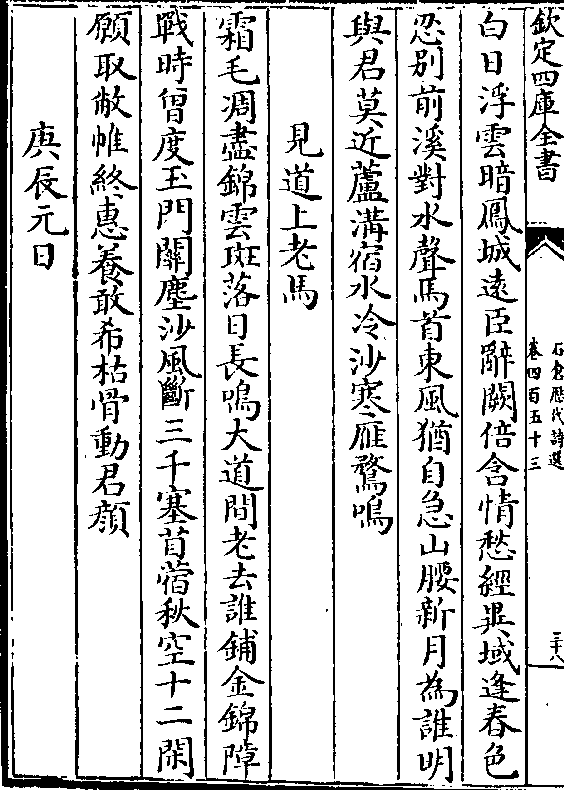 欽定四庫全書
石倉歷代詩選
卷四百五十三
三十八
白日浮雲暗鳳城遠臣辭闕倍含情愁經異域逢春色
忍别前溪對水聲馬首東風猶自急山腰新月為誰明
與君莫近蘆溝宿水冷沙寒雁鶩鳴
見道上老馬
霜毛凋盡錦雲斑落日長鳴大道間老去誰鋪金錦障
戰時曾度玉門關塵沙風斷三千塞苜蓿秋空十二閑
願取敝帷終惠養敢希枯骨動君顔
庚辰元日